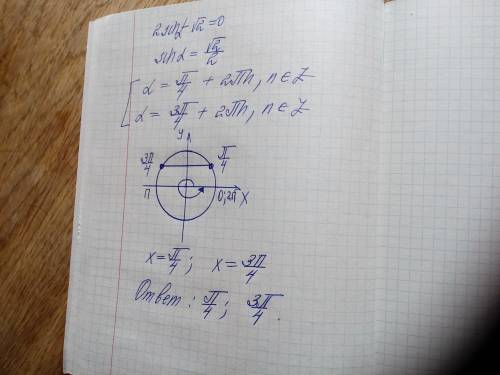 2sinα-√2=0
sinα=√2/2
[ α=π/4+2πn, n∈Z
α=3π/4+2πn, n∈Z
y
3π/4 π/4
π 0;2π x
x=π/4; x=3π/4
Ответ: π/4; 3π/4.